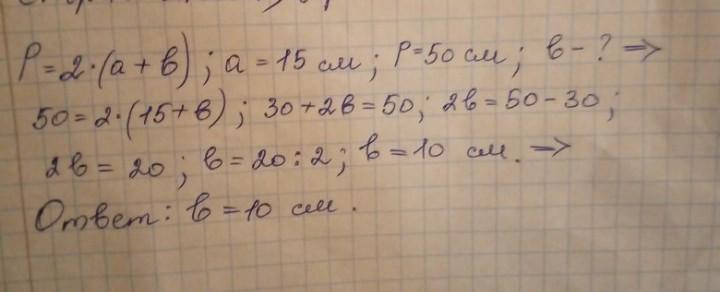 P=2·(a+b); a=15 см; P=50 см; b-? ⇒
50=2·(15+b); 30+2b=50; 2b=50-30;
2b=20; b=20:2; b=10 см. ⇒
Ответ: b=10 см.